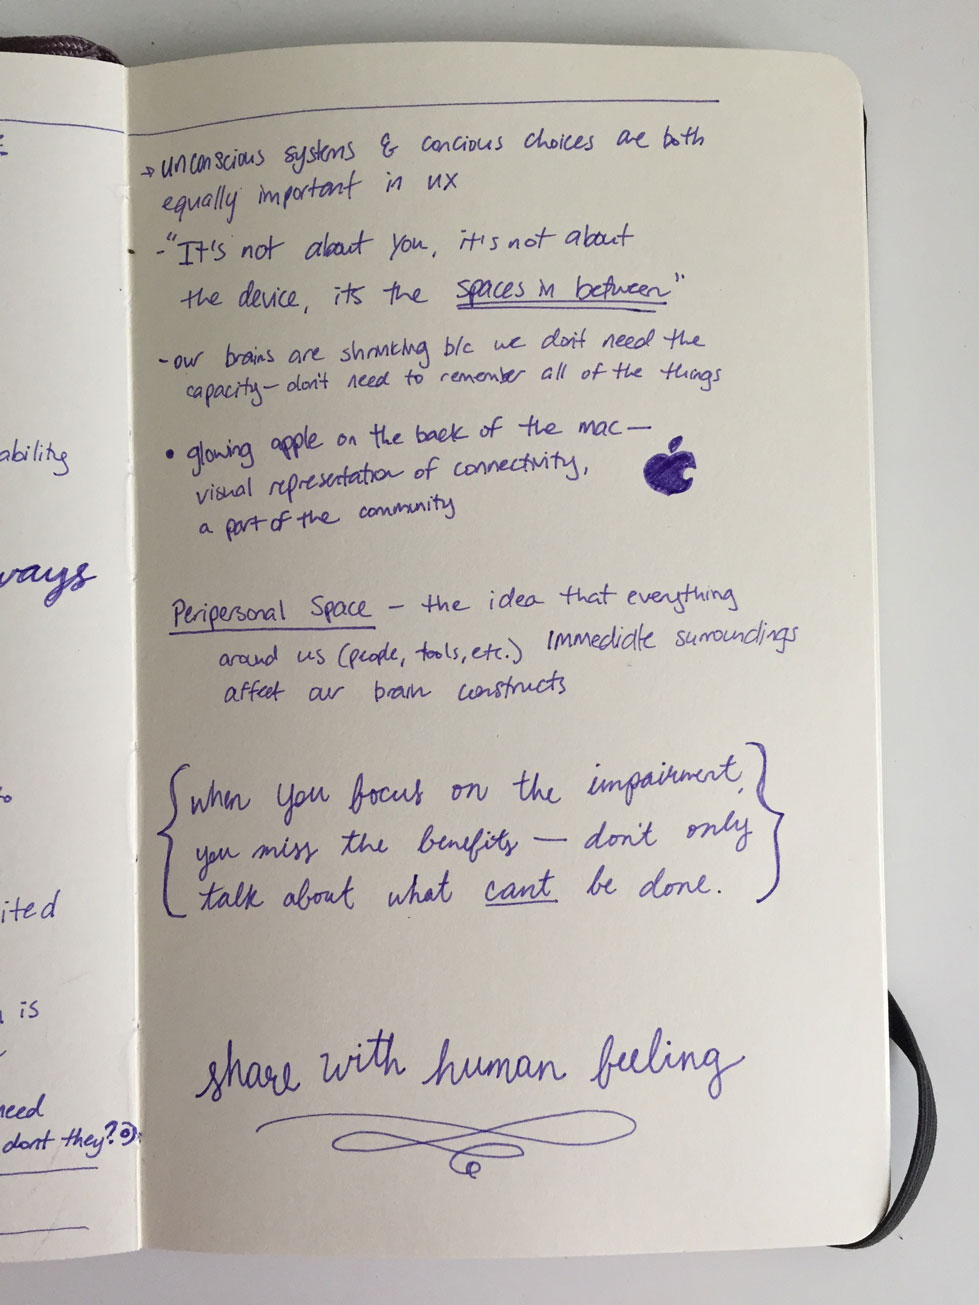 ability
ways
ited
is
need
don't they?
→ unconscious systems & concious choices are both
equally important in UX
- "It's not about you, it's not about
the device, its the spaces in between"
- our brains are shrinking b/c we don't need the
capacity — don't need to remember all of the things
• glowing apple on the back of the mac —
visual representation of connectivity,
a part of the community
Peripersonal Space - the idea that everything
around us (people, tools, etc.) immediate surroundings
affect our brain constructs
{when you focus on the impairment,
you miss the benefits — don't only
talk about what can't be done.}
share with human feeling